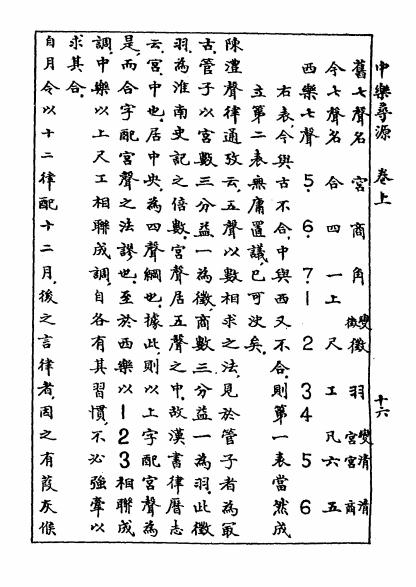 中樂尋源 卷上 十六
舊七聲名 宮 商 角 變徵 徵 羽 變宮 清宮 清商
今七聲名 合 四 一 上 尺 工 凡 六 五
西樂七聲 5. 6. 7. 1 2 3 4 5 6
右表今與古不合、中與西又不合、則第一表當然成
立、第二表無庸置議、已可決矣、
陳澧聲律通攷云、五聲以數相求之法、見於管子者為最
古、管子以宮數三分益一為徵、商數三分益一為羽、此徵
羽、為淮南史記之倍數、宮聲居五聲之中、故漢書律曆志
云、宮、中也、居中央、為四聲綱也、據此、則以上字配宮聲為
是、而合字配宮聲之法謬也、至於西樂以123相聯成
調、中樂以上尺工相聯成調、自各有其習慣、不必強牽以
求其合、
自月令以十二律配十二月、後之言律者、因之有葭灰候